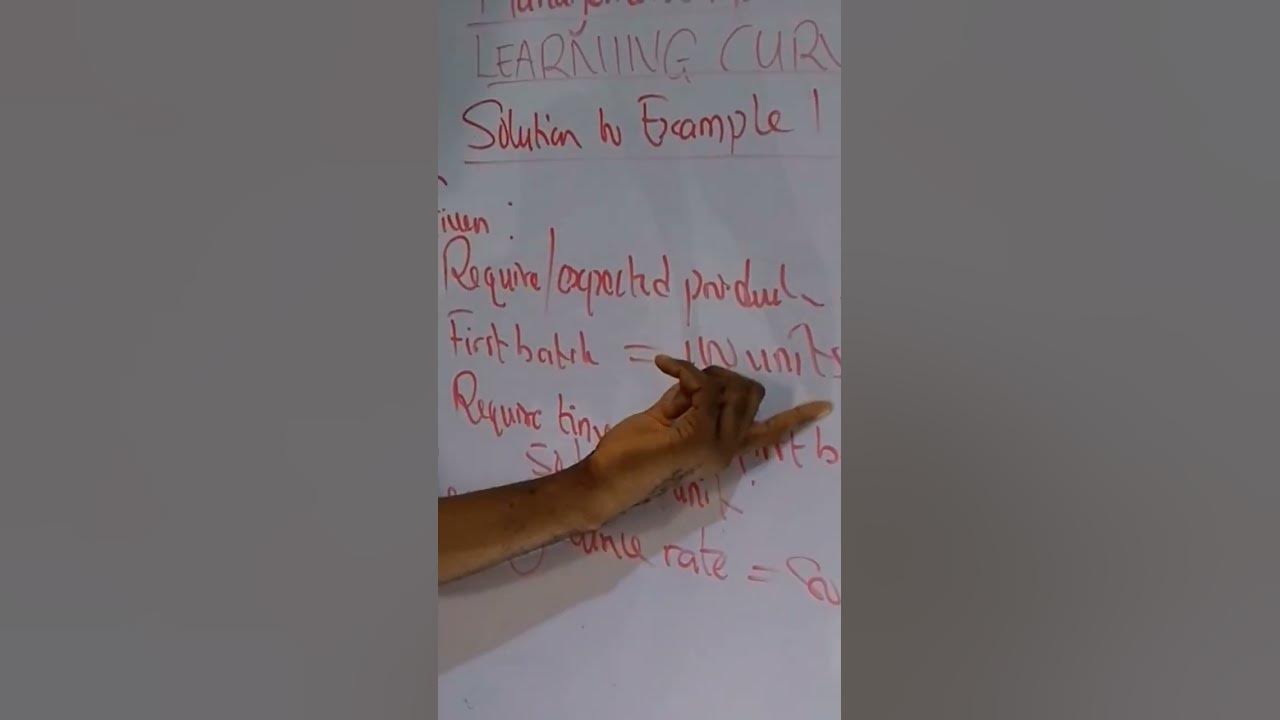 LEARNIING CURV
Solution to Example 1
iven :
Require/expected product
First batch = 100 units
Require tim
So first b
unit
ance rate = 80